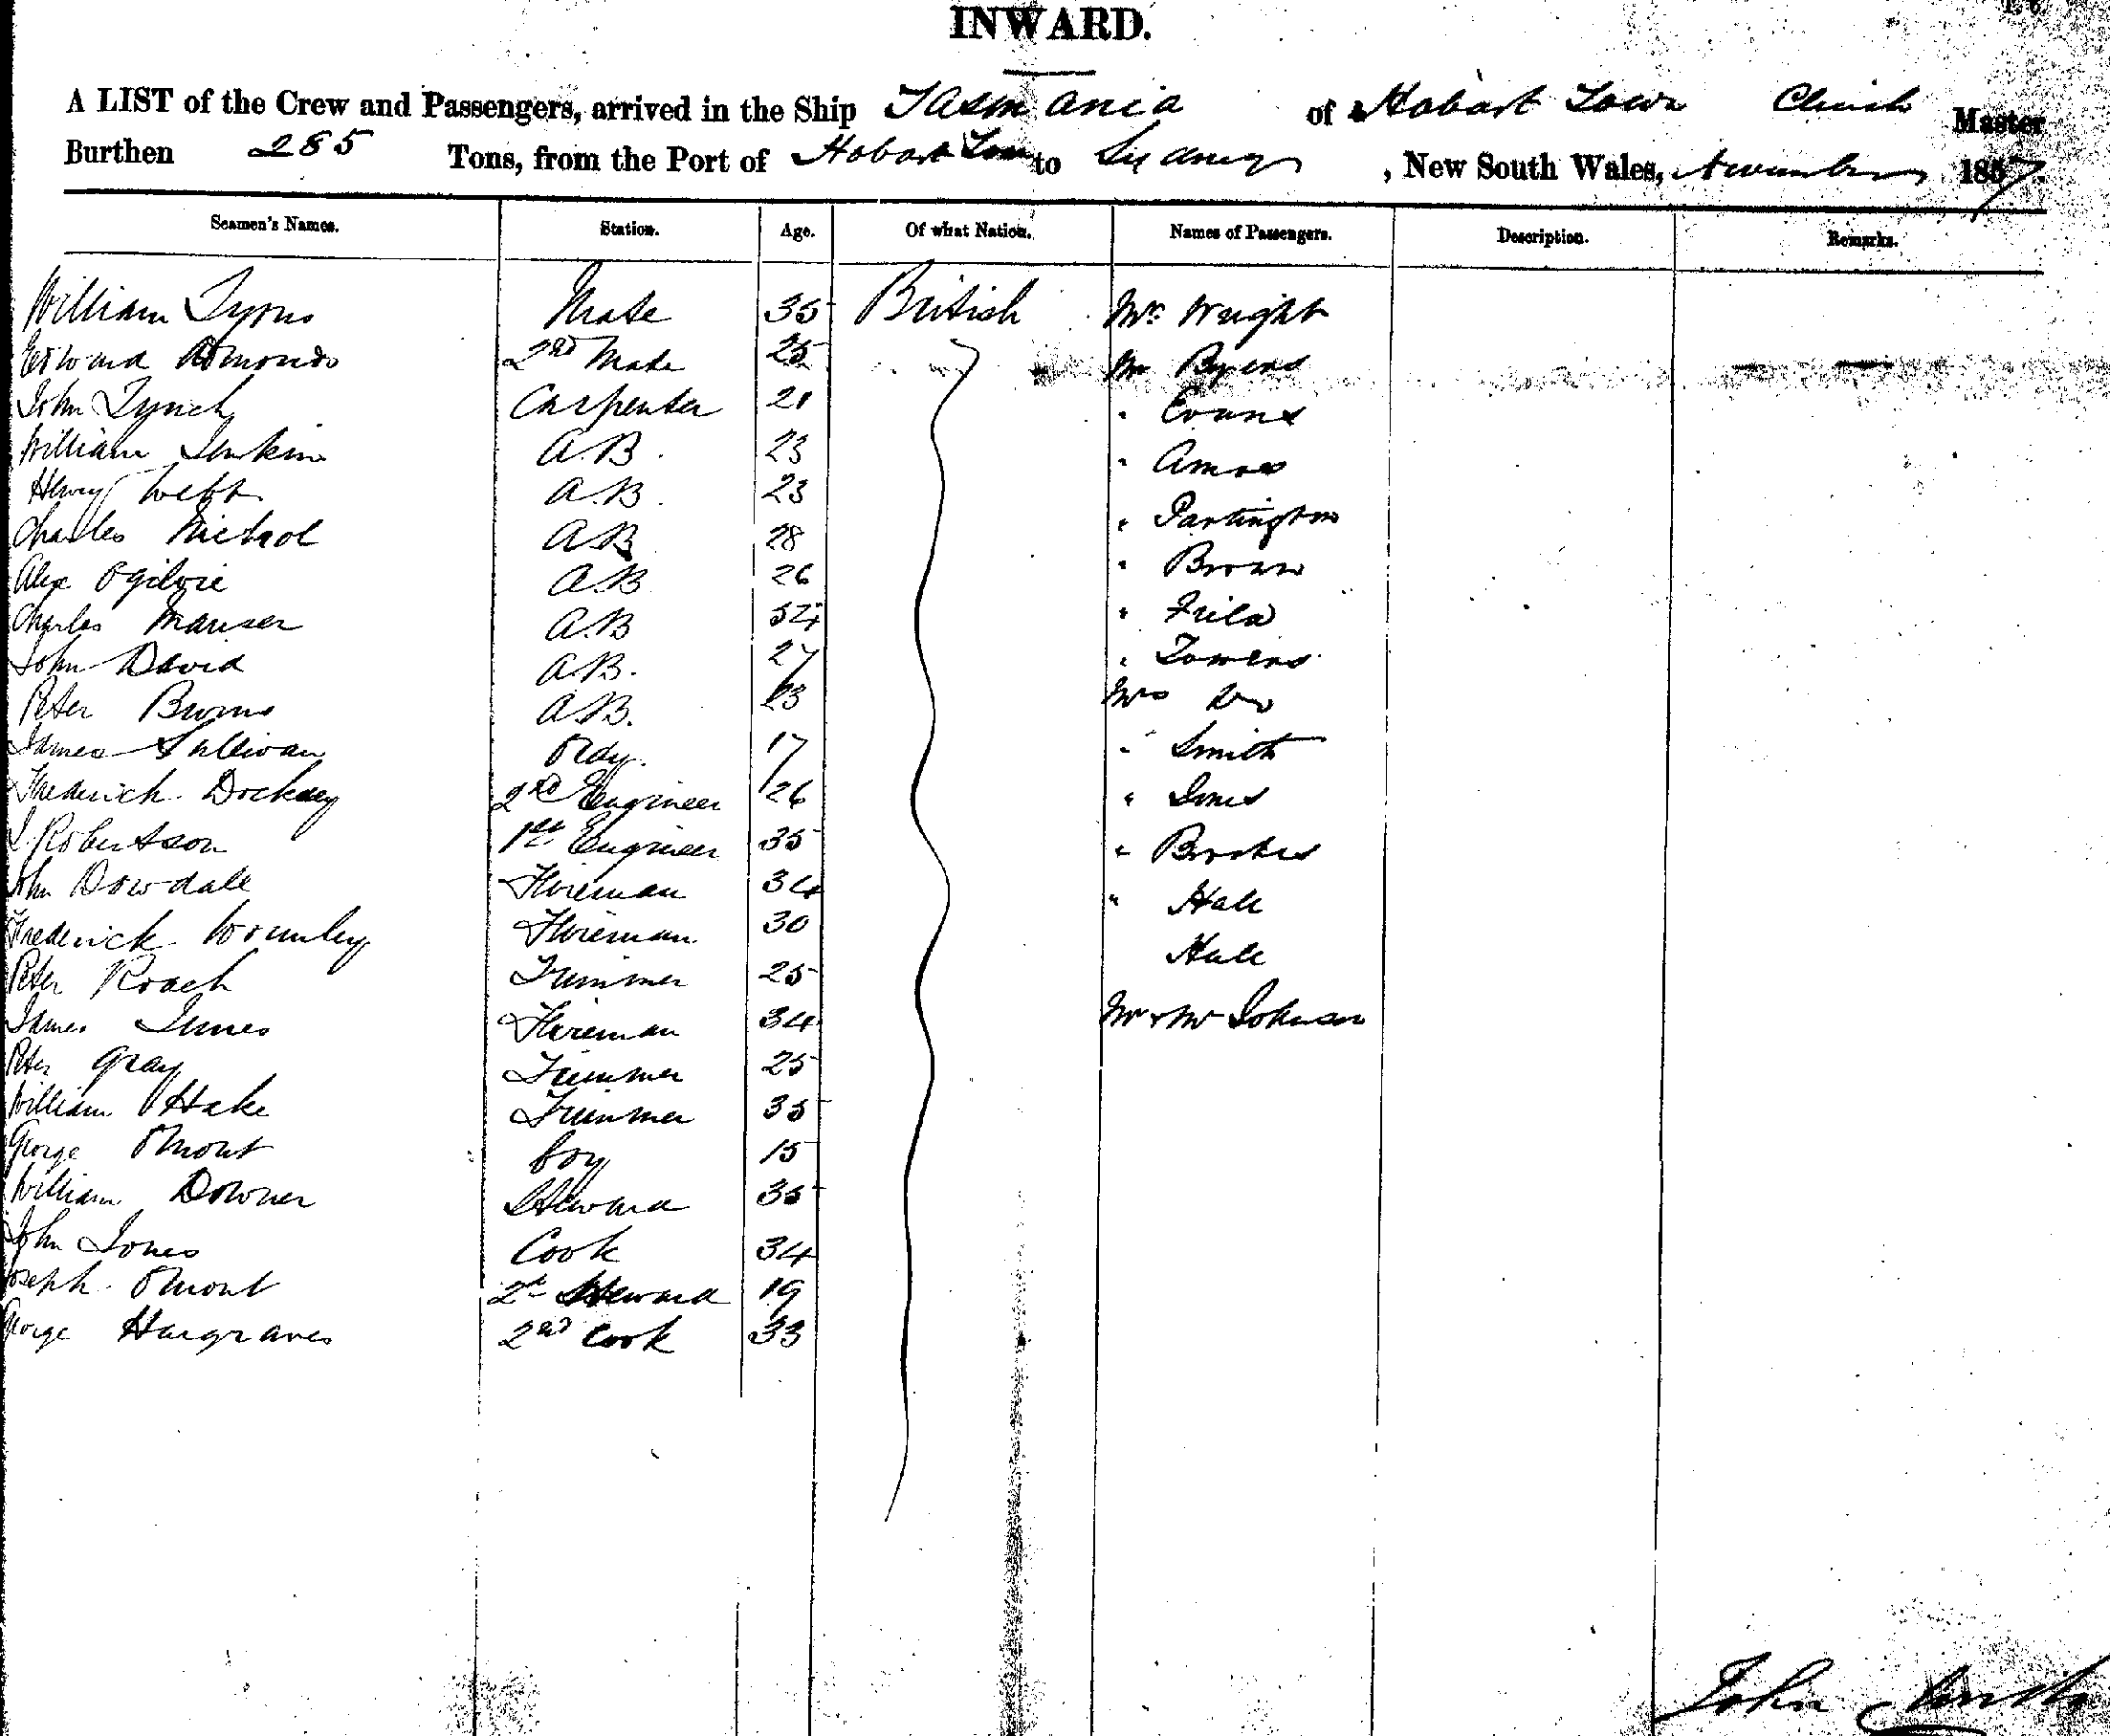 INWARD.
A LIST of the Crew and Passengers, arrived in the Ship Tasmania of Hobart Town Clinch Master
Burthen 285 Tons, from the Port of Hobart Town to Sydney, New South Wales, November 1857.
Seamen's Names. Station. Age. Of what Nation. Names of Passengers. Description. Remarks.
William Lyons Mate 35 British Mr. Wright
Edward Edmonds 2nd Mate 25 Mr Byers
John Lynch Carpenter 21 " Evans
William Jenkins A.B. 23 " Amos
Henry Webb A.B. 23 " Partington
Charles Nichol A.B. 28 " Brown
Alex Ogilvie A.B. 26 " Field
Charles A.B. " Towers
John David A.B. 27 Mrs Do
Peter Burns A.B. 23 " Smith
James Sullivan Ordy. 17 " Jones
Frederick 2nd Engineer 26 " Brookes
Robertson 1st Engineer 35 " Hall
John Dowdall Fireman 34 Hall
Frederick Fireman 30 Mr & Mrs Johnson
Peter Roach Trimmer 25
James Innes Fireman 34
Peter Gray Trimmer 25
William Hake Trimmer 35
George Omont boy 15
William Downer Steward 35
John Jones Cook 34
Joseph Omont 2d Steward 19
George Hargraves 2nd Cook 33
John Clinch